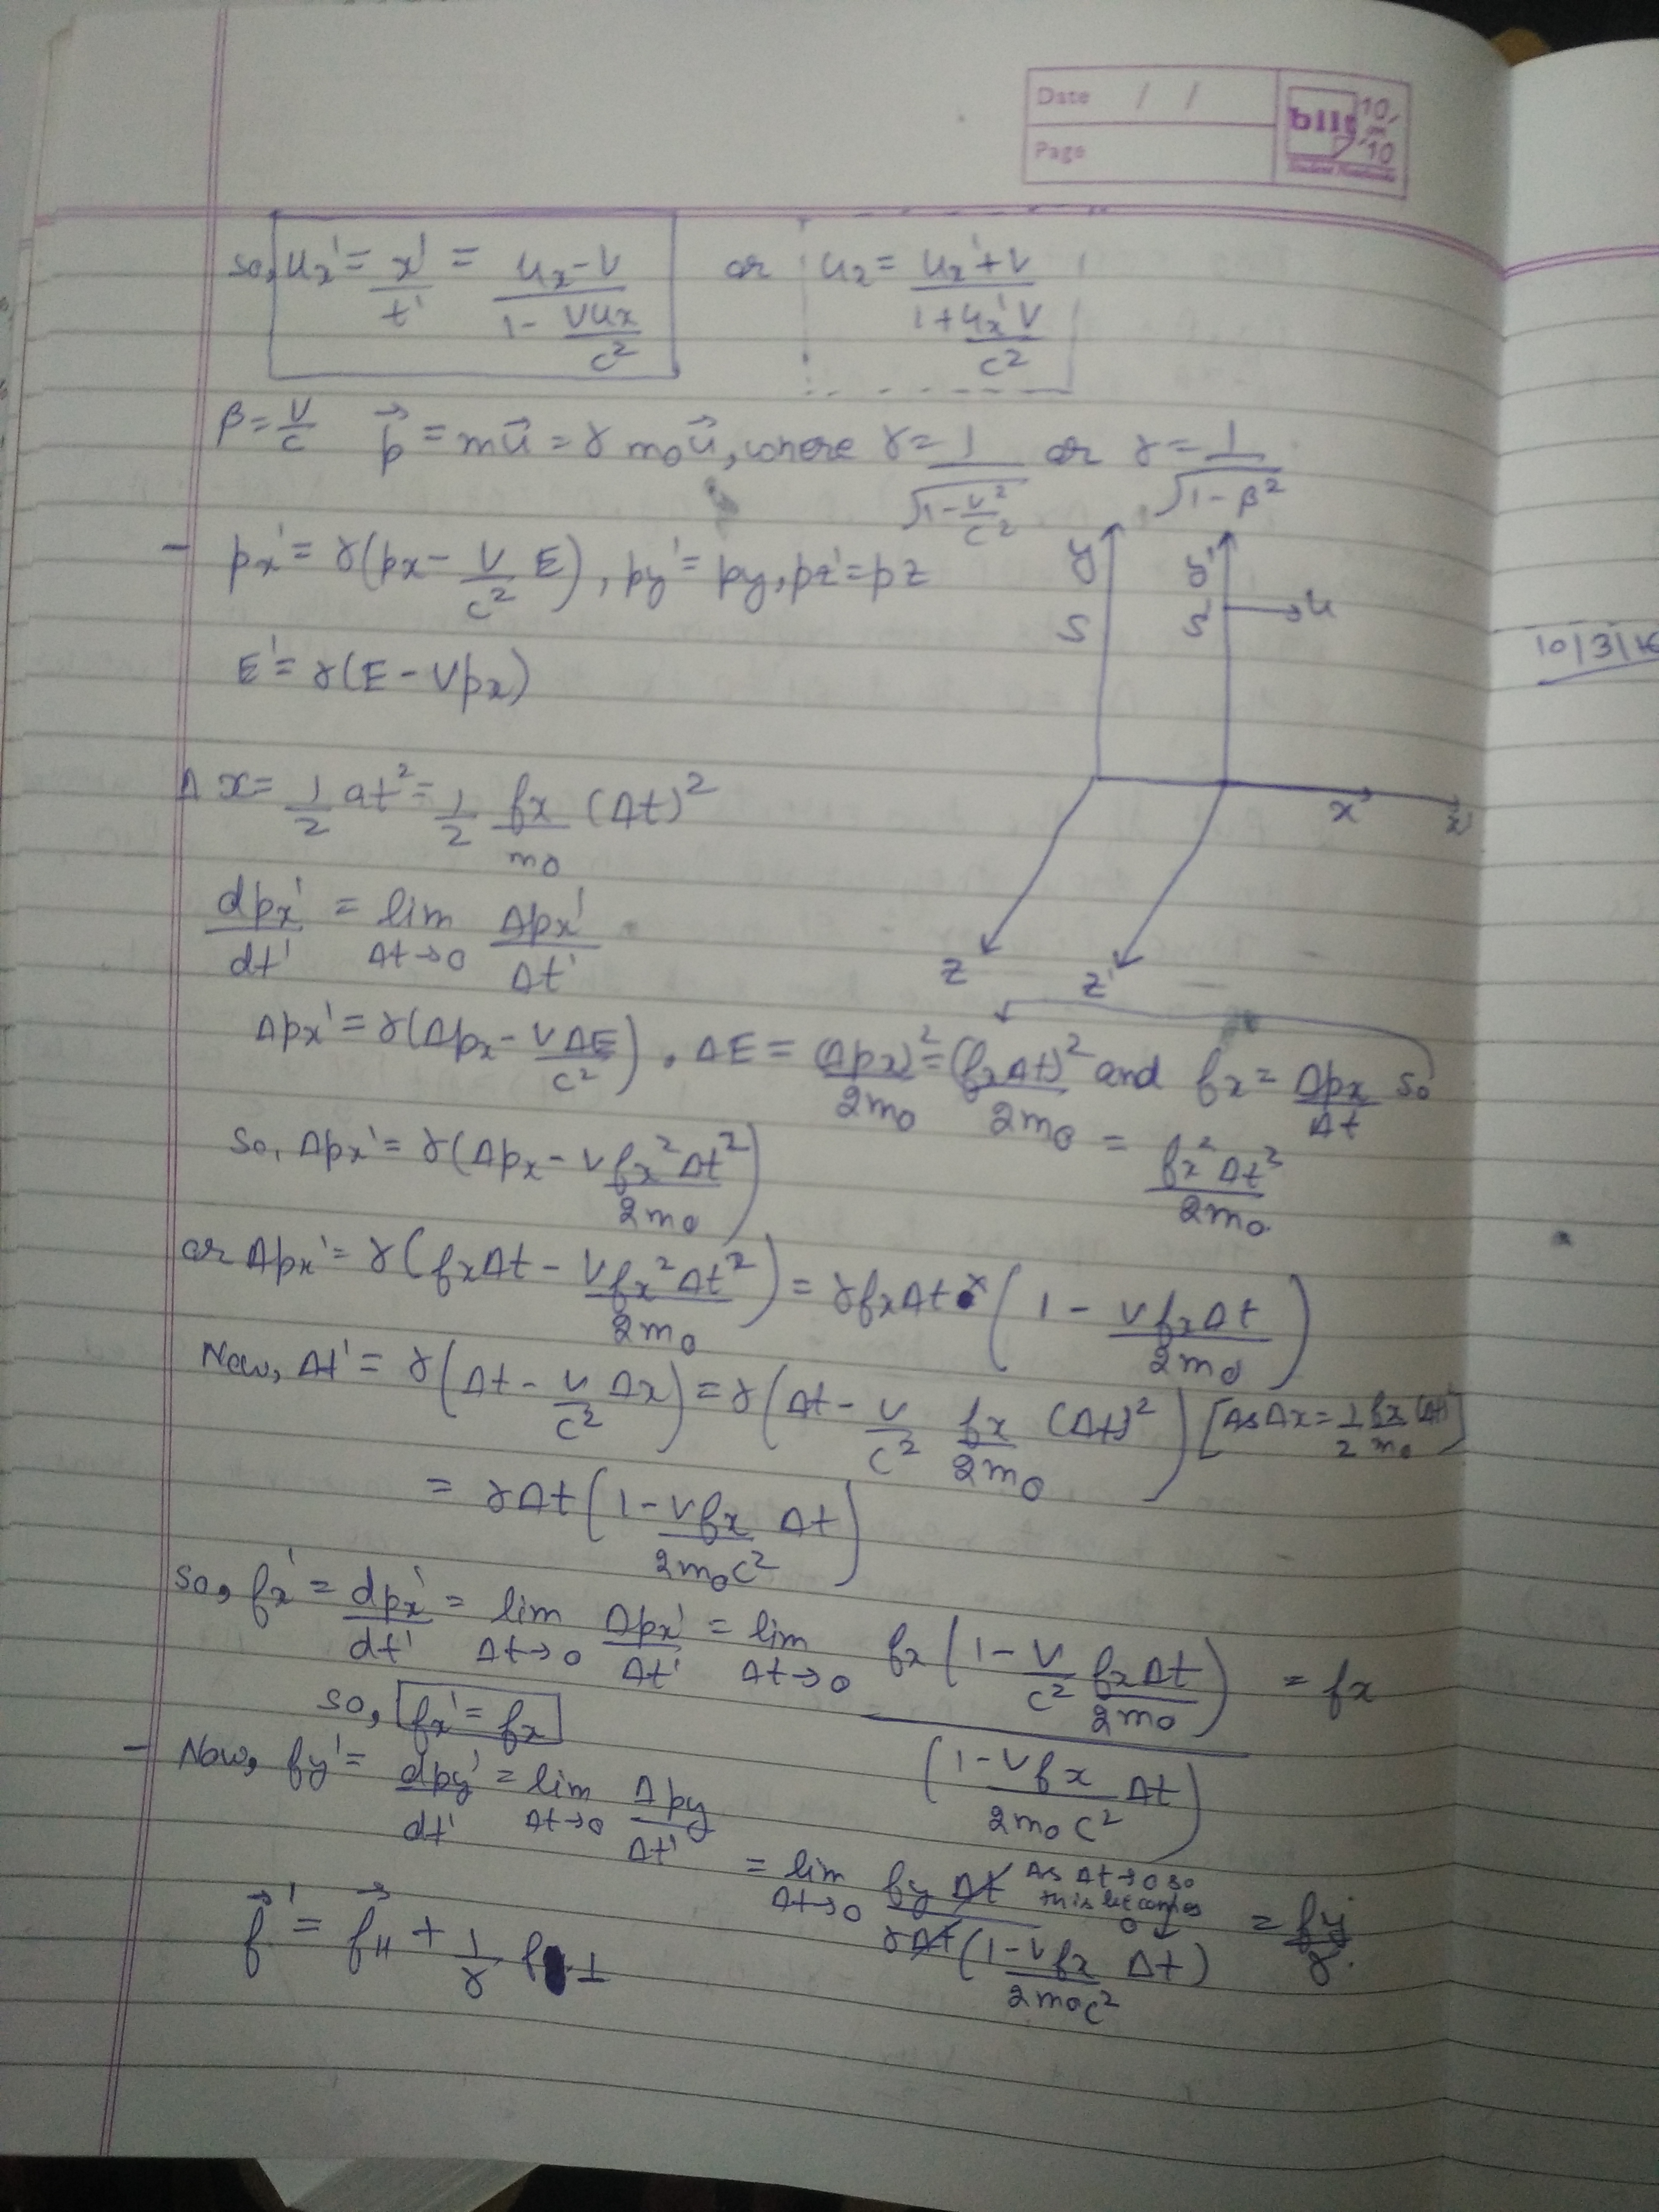 Date / /
Page
bilt
10/10
Student Notebooks
so, ux' = x'/t' = (ux - v)/(1 - vux/c²) or ux = (ux' + v)/(1 + ux'v/c²)
β = v/c p⃗ = mu⃗ = γ m₀u⃗, where γ = 1/√(1 - v²/c²) or γ = 1/√(1 - β²)
- px' = γ(px - v/c² E), py' = py, pz' = pz
E' = γ(E - vpx)
y y'
S S' u
x x'
z z'
10/3/16
Δx = 1/2 at² = 1/2 fx/m₀ (Δt)²
dpx'/dt' = lim Δt→0 Δpx'/Δt'
Δpx' = γ(Δpx - vΔE/c²), ΔE = (Δpx)²/2m₀ = (fxΔt)²/2m₀ and fx = Δpx/Δt so
= fx²Δt²/2m₀
So, Δpx' = γ(Δpx - vfx²Δt²/2m₀)
or Δpx' = γ(fxΔt - vfx²Δt²/2m₀) = γfxΔt (1 - vfxΔt/2m₀)
Now, Δt' = γ(Δt - v/c² Δx) = γ(Δt - v/c² fx/2m₀ (Δt)²) [As Δx = 1/2 fx/m₀ (Δt)²]
= γΔt(1 - vfx/2m₀c² Δt)
so, fx' = dpx'/dt' = lim Δt→0 Δpx'/Δt' = lim Δt→0 fx(1 - v/c² fxΔt/2m₀)/(1 - vfx/2m₀c² Δt) = fx
so, fx' = fx
- Now, fy' = dpy'/dt' = lim Δt→0 Δpy/Δt'
= lim Δt→0 fyΔt/γΔt(1 - vfx/2m₀c² Δt) = fy/γ.
As Δt→0 so
this becomes
0
f⃗' = f⃗∥ + 1/γ f⊥